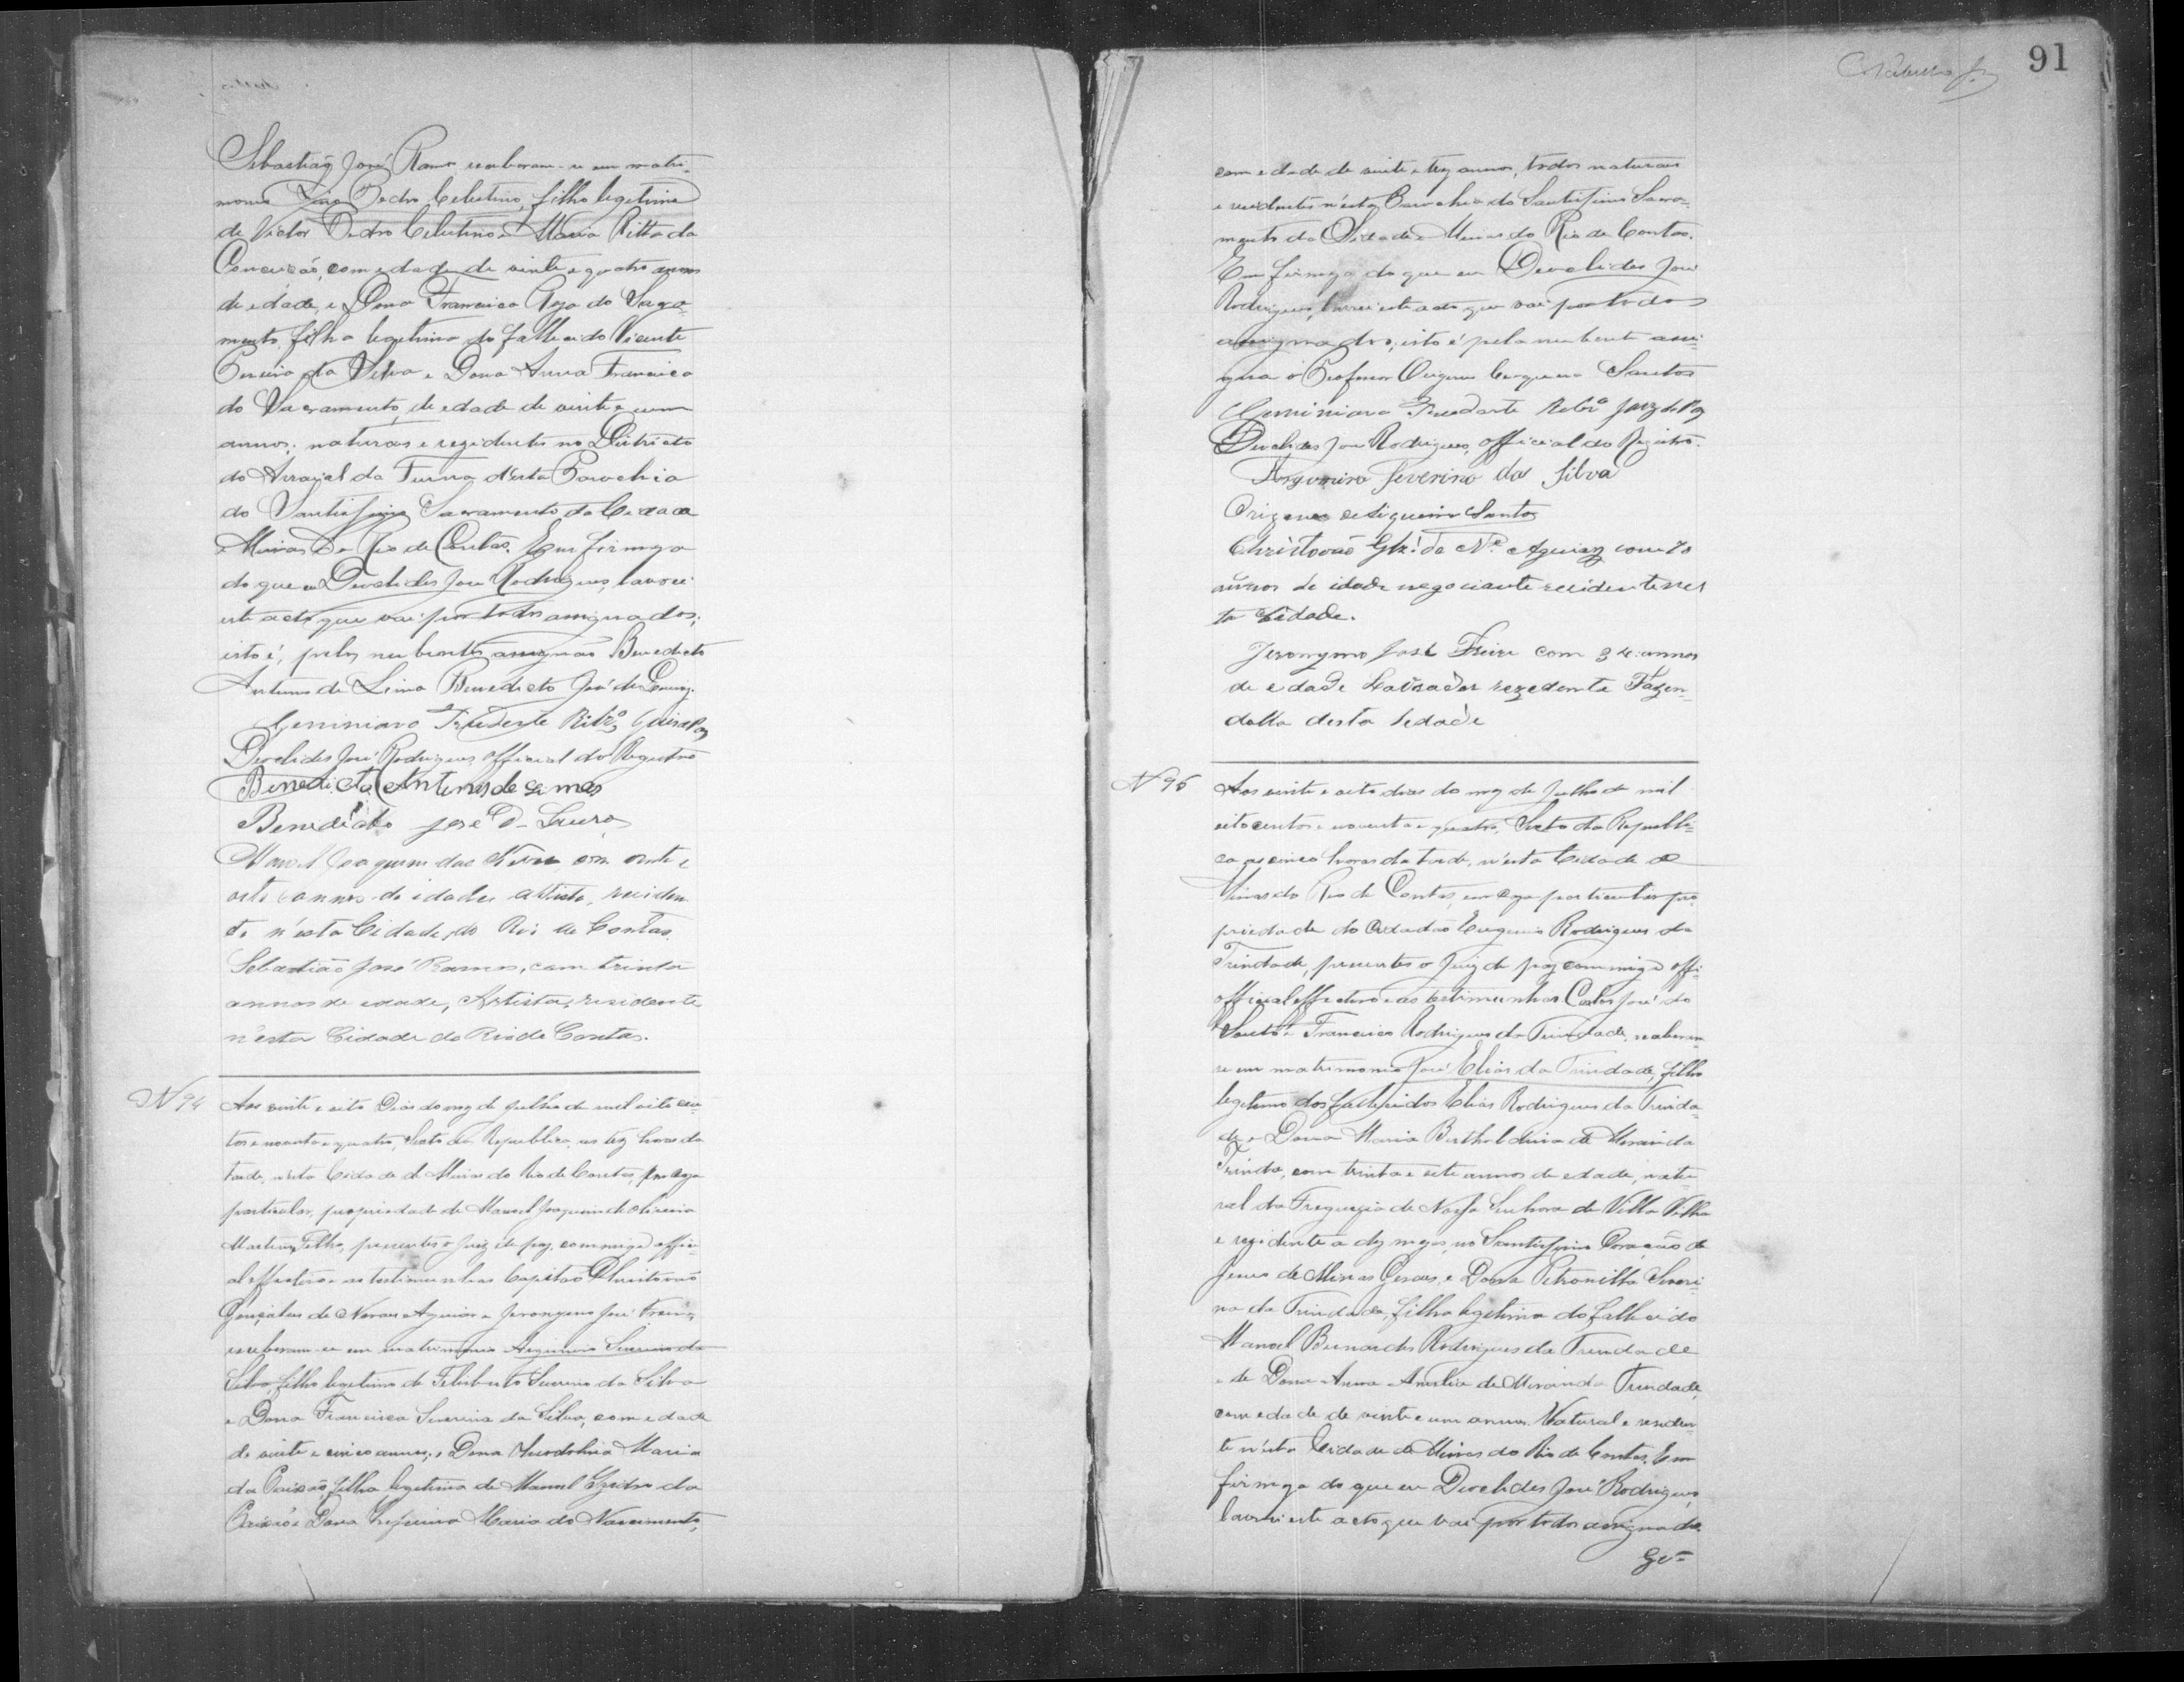 91
Sebastião José Ramos receberam-se em matri-
monio João Pedro Celestino, filho legitimo
de Victor Pedro Celestino e Maria Ritta da
Conceição, com edade de vinte e quatro annos
de edade, e Dona Francisca Roza do Sacra-
mento, filha legitima do fallecido Vicente
Pereira da Silva e Dona Anna Francisca
do Sacramento, de edade de vinte e um
annos; naturaes e rezidentes no Districto
do Arraial da Furna desta Parochia
do Santissimo Sacramento da Cidade
e Minas do Rio de Contas. Em firmeza
do que eu Deoclides José Rodrigues, lavrei
este acto que vai por todos assignados;
isto é, pelos nubentes assignão Benedicto
Antunes de Lima Benedicto José de
Geminiano Tridente Ribrº Juiz de Paz
Deoclides José Rodrigues, official do Registro
Benedicto Antunes de
Benedicto José D.
Manoel Joaquim das Neves com vinte e
oito annos de idade, artista, residen-
te n'esta Cidade, do Rio de Contas.
Sebastião José Ramos, com trinta
annos de edade, Artista, residente
n'esta Cidade do Rio de Contas.
Nº 94 Aos vinte e oito Dias do mez de Julho de mil oito cen-
tos e noventa e quatro, Sexto da Republica, as tez horas da
tarde, nesta Cidade de Minas do Rio de Contas, em caza
particular, propriedade de Manoel Joaquim de Oliveira
Martins Filho, presentes o Juiz de paz, commigo offici-
al effectivo e as testimunhas Capitão Christovão
Gonçalves de Novaes Aguiar e Jeronymo José Freire,
receberam-se em matrimonio Argimiro Severino da
Silva, filho legitimo de Felisberto Severino da Silva
e Dona Francisca Severina da Silva, com edade
de vinte e cinco annos; e Dona Maria
da Paixão, filha legitima de Manoel Izidro da
Paixão e Dona Maria do Nascimento,
com edade de vinte e tez annos, todos naturaes
e residentes n'esta Parochia do Santissimo Sacra-
mento da Cidade e Minas do Rio de Contas.
Em firmeza do que eu Deoclides José
Rodrigues, lavrei este acto que vai por todos
assignados, isto é pela nubente assi-
gna o Professor Santos
Geminiano Tridente Ribrº Juiz de Paz
Deoclides José Rodrigues, official do Registro.
Argimiro Severino da Silva
Origenes Santos
Christovão Glz! de Nes. Aguiar com 70
annos de idade negociante residente nes
ta Cidade.
Jeronymo José Freire com 34 annos
de edade Lavrador rezedente
desta Sidade
Nº 95 Aos vinte e oito dias do mez de Julho de mil
oito centos e noventa e quatro, Sexto da Republi-
ca as cinco horas da tarde, n'esta Cidade de
Minas do Rio de Contas, em caza particular pro-
priedade do Cidadão Eugenio Rodrigues da
Trindade, presentes o Juiz de paz commigo offi-
official effectivo e as testimunhas Carlos José do
Santos e Francisco Rodrigues da Trindade, receberam-
se em matrimonio José Elias da Trindade, filho
legitimo dos fallecidos Elias Rodrigues da Trinda-
de e Dona Maria de Miranda
Trinda, com trinta e sete annos de edade, natu-
ral da Freguezia de Nossa Senhora de Villa Velha
e rezidente a dez mezes, no Santissimo Coração de
Jezus de Minas Geraes, e Dona Petronilla Severi-
na da Trindade, filha legitima do fallecido
Manoel Bernardes Rodrigues da Trindade
e de Dona Anna Amelia de Miranda Trindade,
com edade de vinte e um annos. Natural e residen-
te n'esta Cidade de Minas do Rio de Contas. Em
firmeza do que eu Deoclides José Rodrigues,
lavrei este acto que vai por todos assignado.